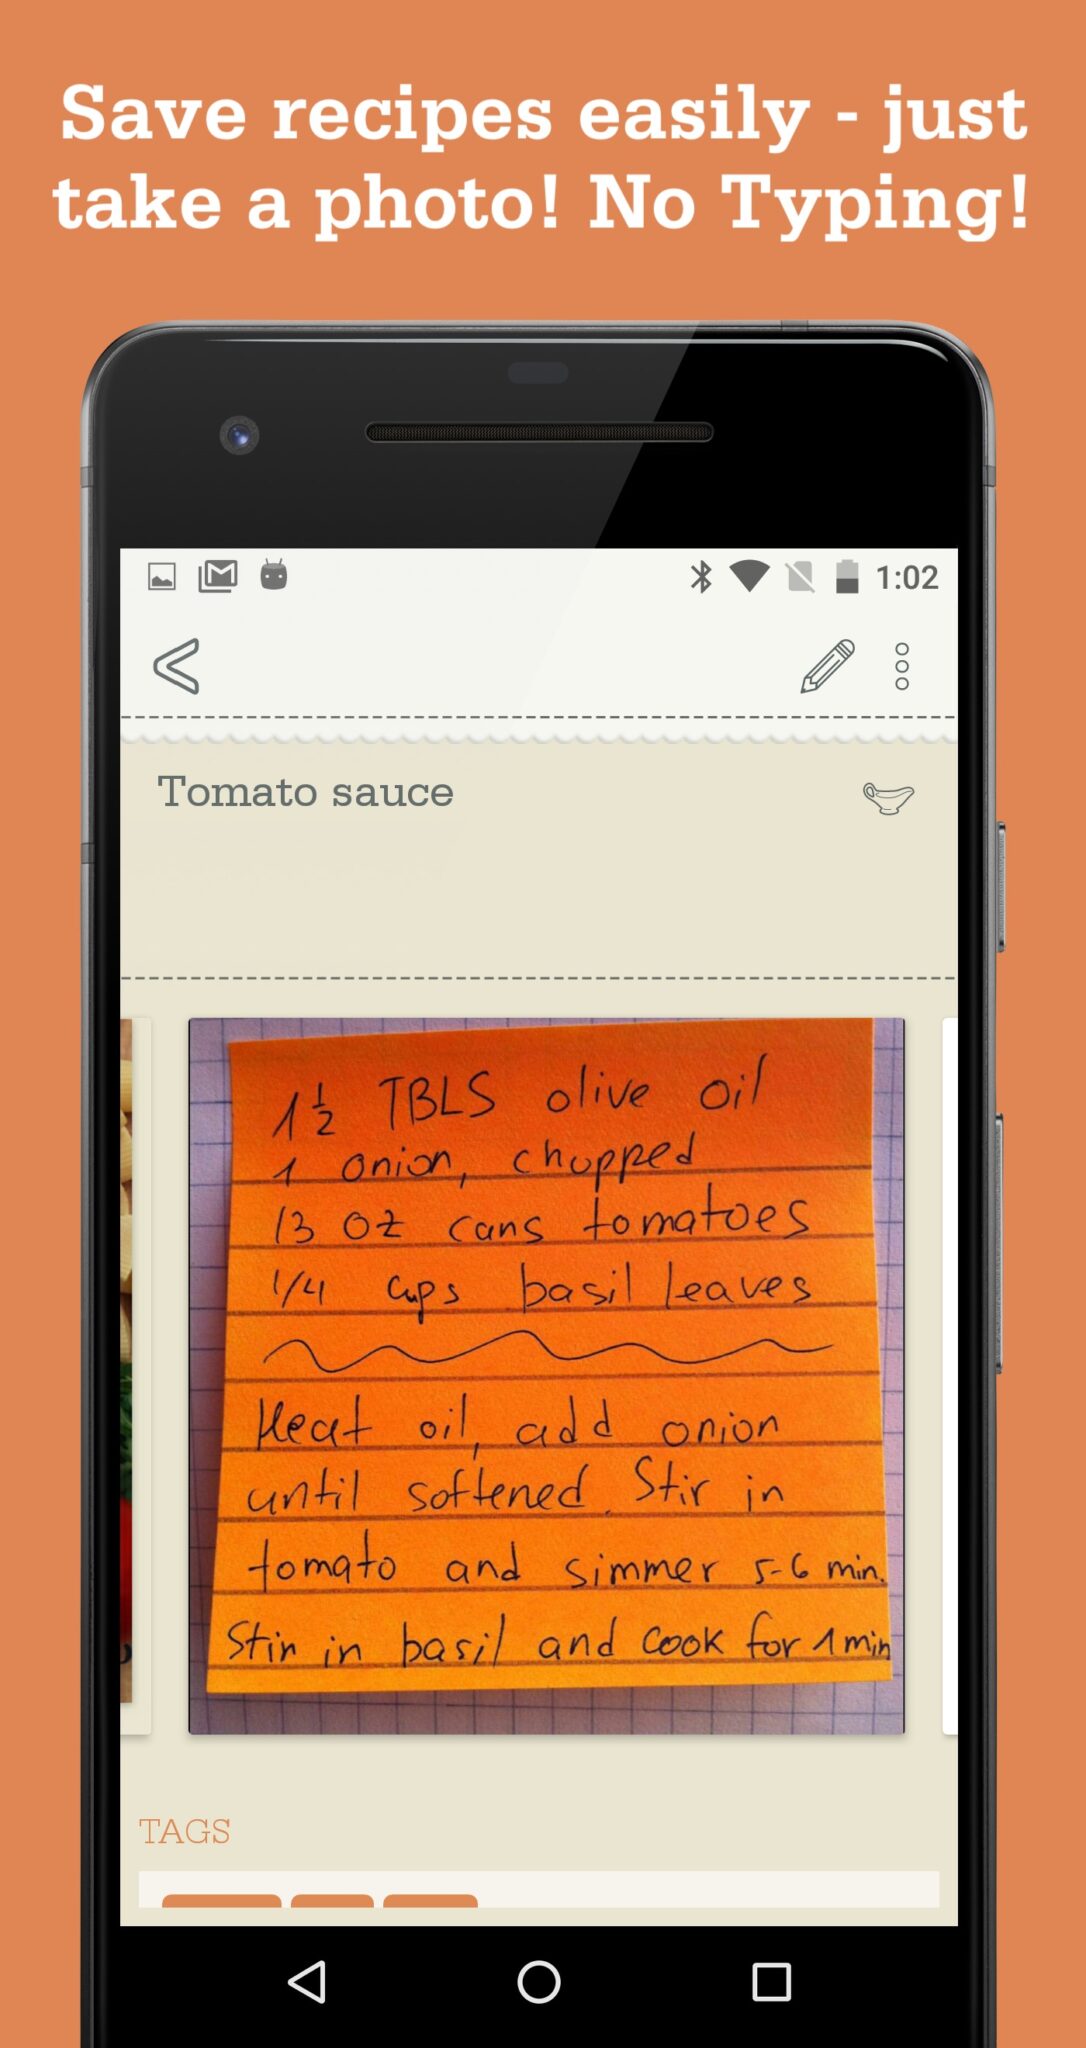 Save recipes easily - just
take a photo! No Typing!
1:02
Tomato sauce
1 ½ TBLS olive oil
1 onion, chopped
13 oz cans tomatoes
1/4 cups basil leaves
Heat oil, add onion
until softened. Stir in
tomato and simmer 5-6 min.
Stir in basil and cook for 1 min
TAGS